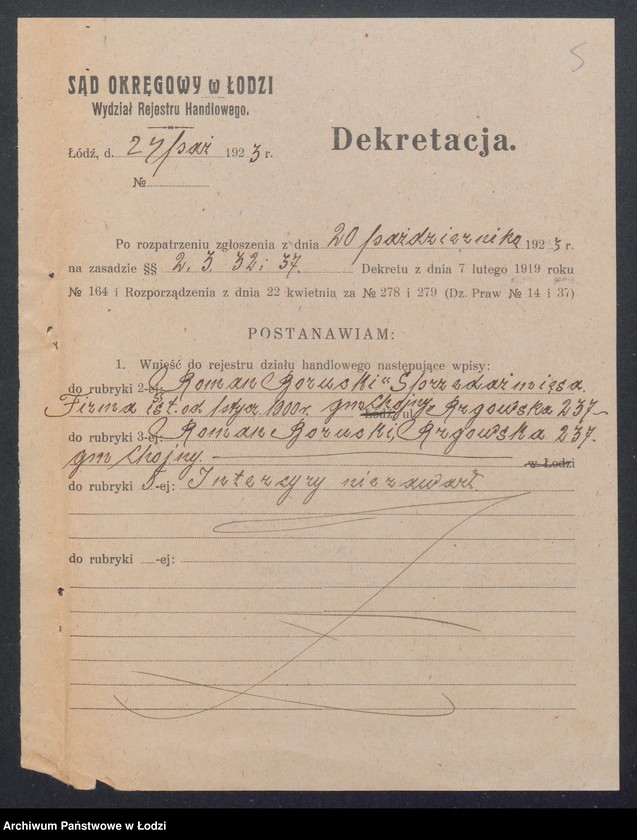 5
SĄD OKRĘGOWY w ŁODZI
Wydział Rejestru Handlowego.
Dekretacja.
Łódź, d. 27 paź 1923 r.
№
Po rozpatrzeniu zgłoszenia z dnia 20 października 1923 r.
na zasadzie §§ 2. 3. 32 i 37. Dekretu z dnia 7 lutego 1919 roku
№ 164 i Rozporządzenia z dnia 22 kwietnia za № 278 i 279 (Dz. Praw № 14 i 37)
POSTANAWIAM:
1. Wnieść do rejestru działu handlowego następujące wpisy:
do rubryki 2-ej: "Roman Boruski" Sprzedaż mięsa.
Firma ist. od 1 stycz. 1900 r. gm Chojny Łódź, ul. Rzgowska 237
do rubryki 3-ej: Roman Boruski, Rzgowska 237.
gm Chojny. w Łodzi
do rubryki 5-ej: Intercyzy nie zawarł.
do rubryki -ej:
Archiwum Państwowe w Łodzi